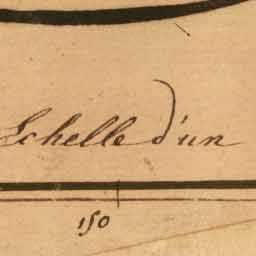 Echelle d'un
150